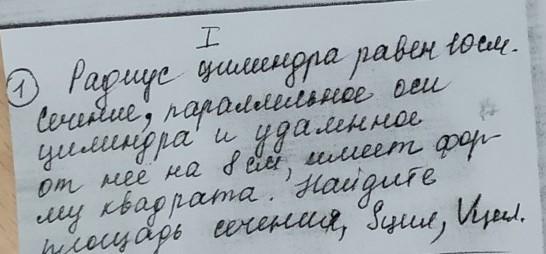 I
1 Радиус цилиндра равен 10 см.
Сечение, параллельное оси
цилиндра и удаленное
от неё на 8 см, имеет фор-
му квадрата. Найдите
площадь сечения, Sцил, Vцил.